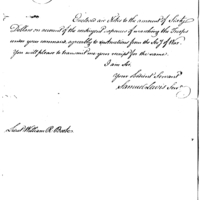 Enclosed are Notes to the amount of Sixty
Dollars on account of the contingent expences of marching the Troops
under your command, agreeably to instructions from the Secy of War.
You will please to transmit me your receipt for the same.
I am Sir
Your obedient Servant
Samuel Lewis Senr
Lieut William R.